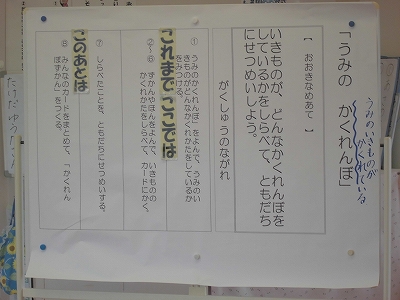 「うみの　かくれんぼ」
うみのいきものが
かくれている
【　おおきなめあて　】
いきものが、どんなかくれんぼを
しているかをしらべて、ともだち
にせつめいしよう。
がくしゅうのながれ
①　うみのかくれんぼ」をよんで、うみのい
きものがどんなかくれかたをしているか
をみつける。
これまで ここでは
②～⑥　ずかんやほんをよんで、いきものの
かくれかたをしらべて、カードにかく。
⑦　しらべたことを、ともだちにせつめいする。
このあとは
⑧　みんなのカードをまとめて、「かくれん
ぼずかん」をつくる。